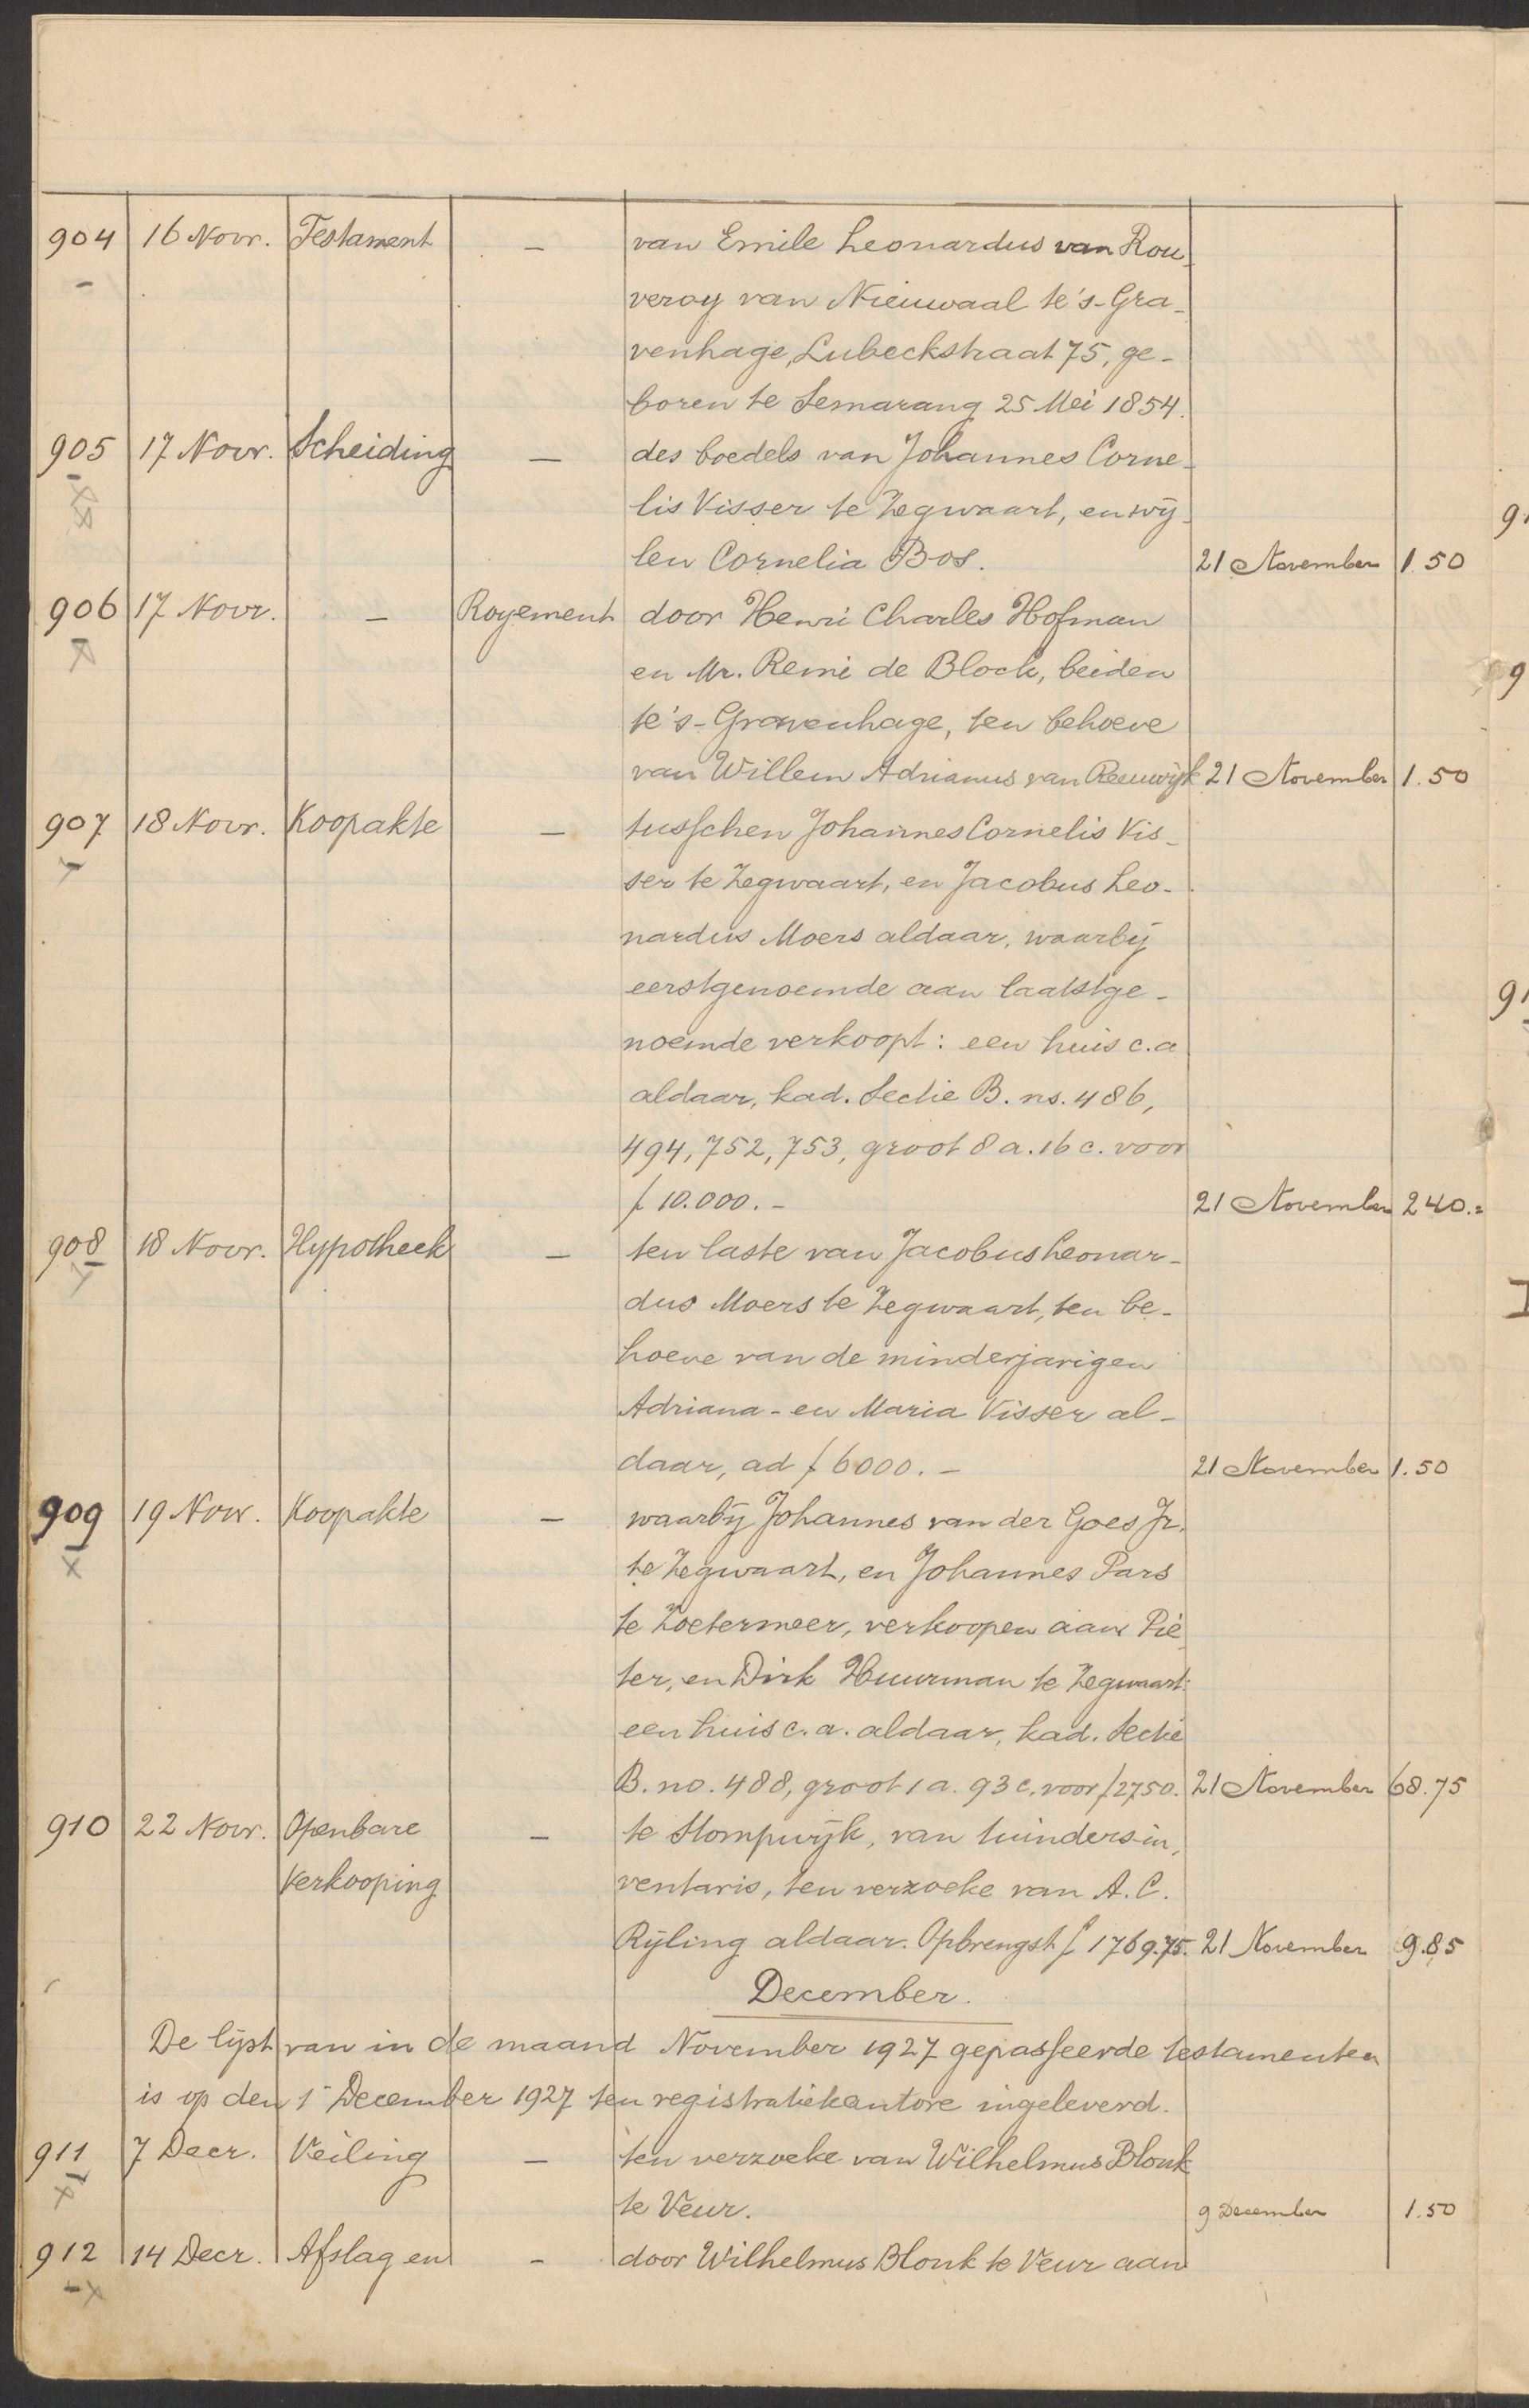 904 16 Novr. Testament — van Emile Leonardus van Rou-
veroy van Nieuwaal te 's-Gra-
venhage, Lubeckstraat 75, ge-
boren te Semarang 25 Mei 1854.
905 17 Novr. Scheiding — des boedels van Johannes Corne-
lis Visser te Zegwaart, en wij-
len Cornelia Bos. 21 November 1.50
906 17 Novr. — Royement door Henri Charles Hofman
en Mr. Remi de Block, beiden
te 's-Gravenhage, ten behoeve
van Willem Adrianus van Reeuwijk 21 November 1.50
907 18 Novr. Koopakte — tusschen Johannes Cornelis Vis-
ser te Zegwaart, en Jacobus Leo-
nardus Moers aldaar, waarbij
eerstgenoemde aan laatstge-
noemde verkoopt: een huis c.a
aldaar, kad. Sectie B. ns. 486,
494, 752, 753, groot 8 a. 16 c. voor
f 10.000.- 21 November 240.=
908 18 Novr. Hypotheek — ten laste van Jacobus Leonar-
dus Moers te Zegwaart, ten be-
hoeve van de minderjarigen
Adriana- en Maria Visser al-
daar, ad f 6000.- 21 November 1.50
909 19 Novr. Koopakte — waarbij Johannes van der Goes Jr.
te Zegwaart, en Johannes Pars
te Zoetermeer, verkoopen aan Pie
ter, en Dirk Huurman te Zegwaart:
een huis c.a. aldaar, kad. Sectie
B. no. 488, groot 1 a. 93 c. voor f 2750. 21 November 68.75
910 22 Novr. Openbare — te Stompwijk, van tuinders-in-
Verkooping ventaris, ten verzoeke van A. C.
Rijling aldaar. Opbrengst f 1769.75. 21 November 9.85
December.
De lijst van in de maand November 1927 gepasseerde testamenten
is op den 1 December 1927 ten registratiekantore ingeleverd.
911 7 Decr. Veiling — ten verzoeke van Wilhelmus Blonk
te Veur. 9 December 1.50
912 14 Decr. Afslag en - door Wilhelmus Blonk te Veur aan